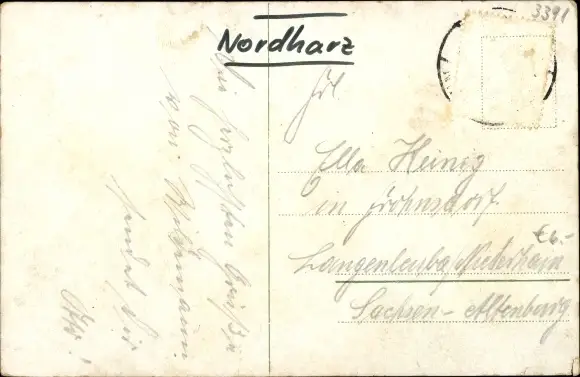 3391
Nordharz
Die herzlichsten Grüße
von
sendet Dir
Otto!
Frl.
Ella Heinig
in Frohnsdorf
€ 6.-
Langenleuba Niederhain
Sachsen-Altenburg